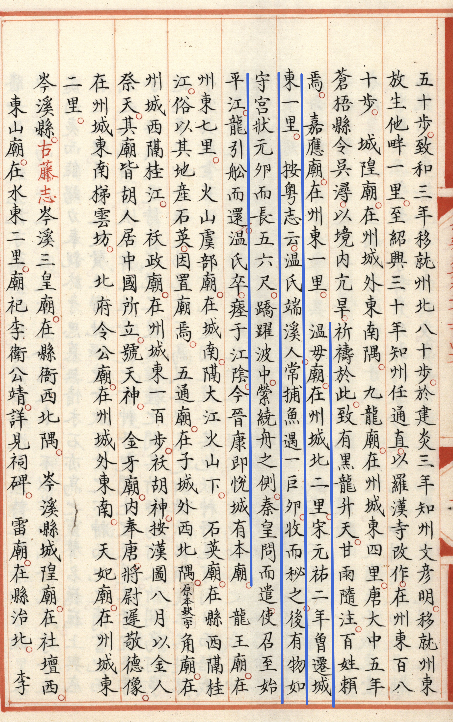 五十步致和三年移就州北八十步於建炎三年知州文彦明移就州東
放生池畔一里至紹興三十年知州任通直以羅漢寺改作在州東百八
十步 城隍廟在州城外東南隅 九龍廟在州城東四里唐大中五年
蒼梧縣令吳潯以境内亢旱祈禱於此致有黑龍升天甘雨隨注百姓賴
焉 嘉應廟在州東一里 温毋廟在州城北二里宋元祐二年曽遷城
東一里 按粤志云温氏端溪人常捕魚遇一巨夘收而秘之後有物如
守宫狀元夘而長五六尺蹻躍波中縈繞舟之側秦皇問而遣使召至始
平江龍引舩而還温氏卒瘗于江陰今晉康即悦城有本廟 龍王廟在
州東七里 火山虞部廟在城南隔大江火山下 石英廟在縣西隔桂
江俗以其地産石英因置廟焉 五通廟在子城外西北隅 角廟在
州城西隔桂江 祆政廟在州城東一百步祆胡神按漢圖八月以金人
祭天其廟皆胡人居中國所立號天神 金牙廟内奉唐將尉遲敬德像
在州城東南梯雲坊 北府令公廟在州城外東南 天妃廟在州城東
二里
岑溪縣古藤志岑溪三皇廟在縣衙西北隅 岑溪縣城隍廟在社壇西
東山廟在水東二里廟祀李衛公靖詳見祠碑 雷廟在縣治北 李